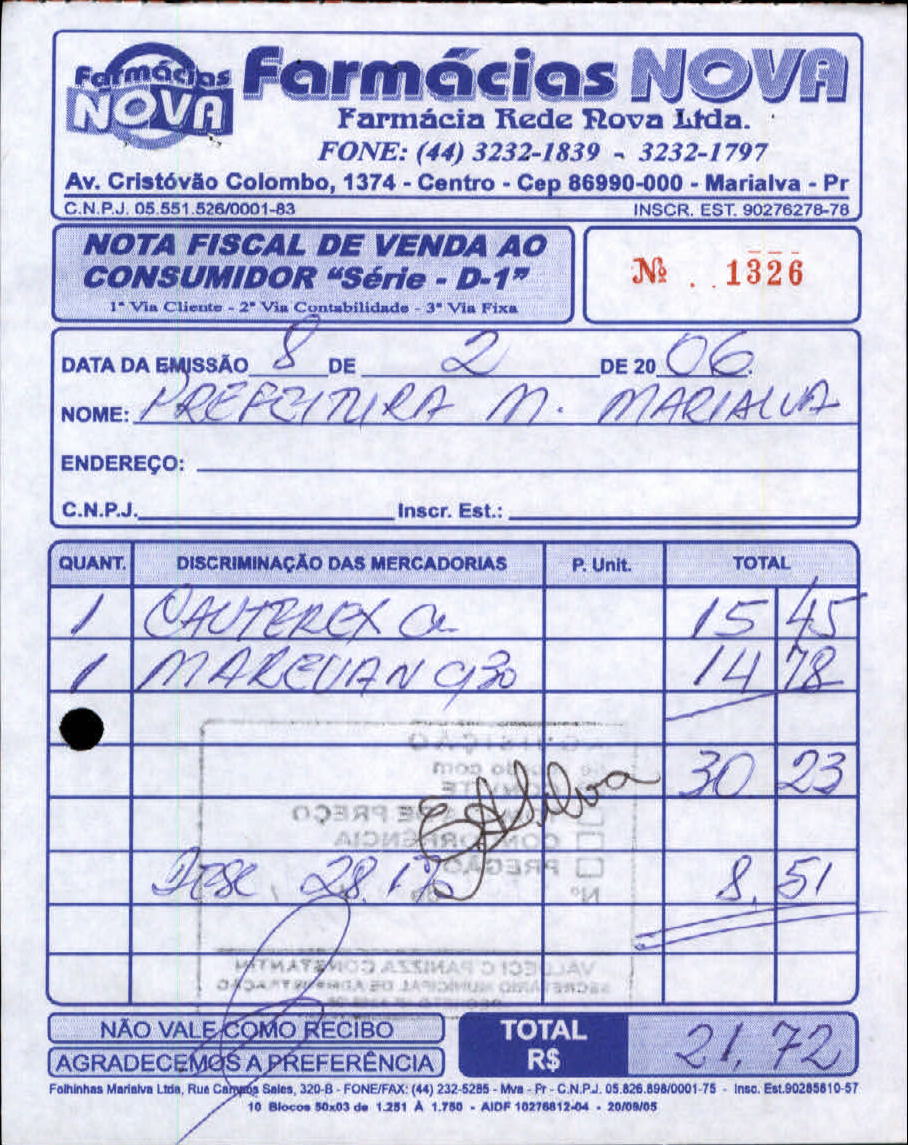 Farmácias NOVA
Farmácias NOVA
Farmácia Rede Nova Ltda.
FONE: (44) 3232-1839 - 3232-1797
Av. Cristóvão Colombo, 1374 - Centro - Cep 86990-000 - Marialva - Pr
C.N.P.J. 05.551.526/0001-83 INSCR. EST. 90276278-78
NOTA FISCAL DE VENDA AO
CONSUMIDOR "Série - D-1"
1ª Via Cliente - 2ª Via Contabilidade - 3ª Via Fixa
Nº 1326
DATA DA EMISSÃO 8 DE 2 DE 20 06
NOME: PREFEITURA M. MARIALVA
ENDEREÇO:
C.N.P.J. Inscr. Est.:
QUANT. DISCRIMINAÇÃO DAS MERCADORIAS P. Unit. TOTAL
1 CAUTEREX 15 45
1 MAREVAN C/30 14 78
30 23
CONVITE
TOMADA DE PREÇO
EASilva
CONCORRÊNCIA
PREGÃO
Desc 28,1% 8,51
Nº
VALDECI C PANIZZA CONSTANTIN
SECRETÁRIO MUNICIPAL DE ADMINISTRAÇÃO
NÃO VALE COMO RECIBO
AGRADECEMOS A PREFERÊNCIA
TOTAL R$ 21,72
Folhinhas Marialva Ltda, Rua Campos Sales, 320-B - FONE/FAX: (44) 232-5285 - Mva - Pr - C.N.P.J. 05.826.898/0001-75 - Insc. Est.90285610-57
10 Blocos 50x03 de 1.251 À 1.750 - AIDF 10276812-04 - 20/09/05